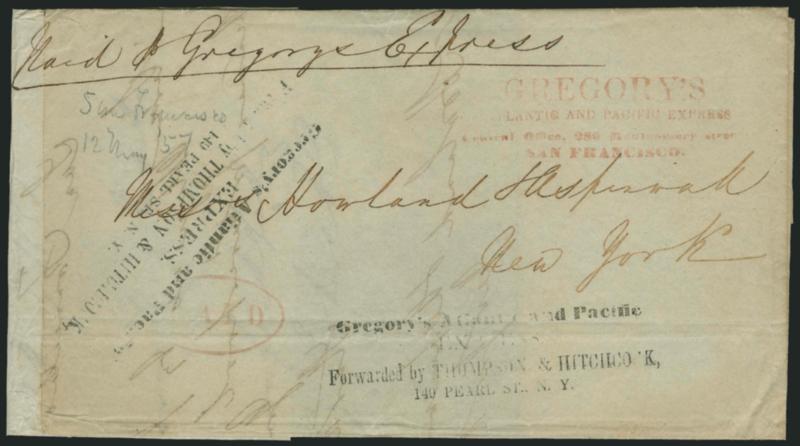 Paid p Gregorys Express
GREGORY'S
ATLANTIC AND PACIFIC EXPRESS
General Office, 280 Montgomery street
SAN FRANCISCO.
San Francisco
12 May 57
Gregory's Atlantic and Pacific
EXPRESS,
by THOMPSON & HITCHCOCK
149 PEARL ST. N. Y.
Howland & Aspinwall
New York
Gregory's Atlantic and Pacific
Forwarded by THOMPSON & HITCHCOCK,
149 PEARL ST., N. Y.